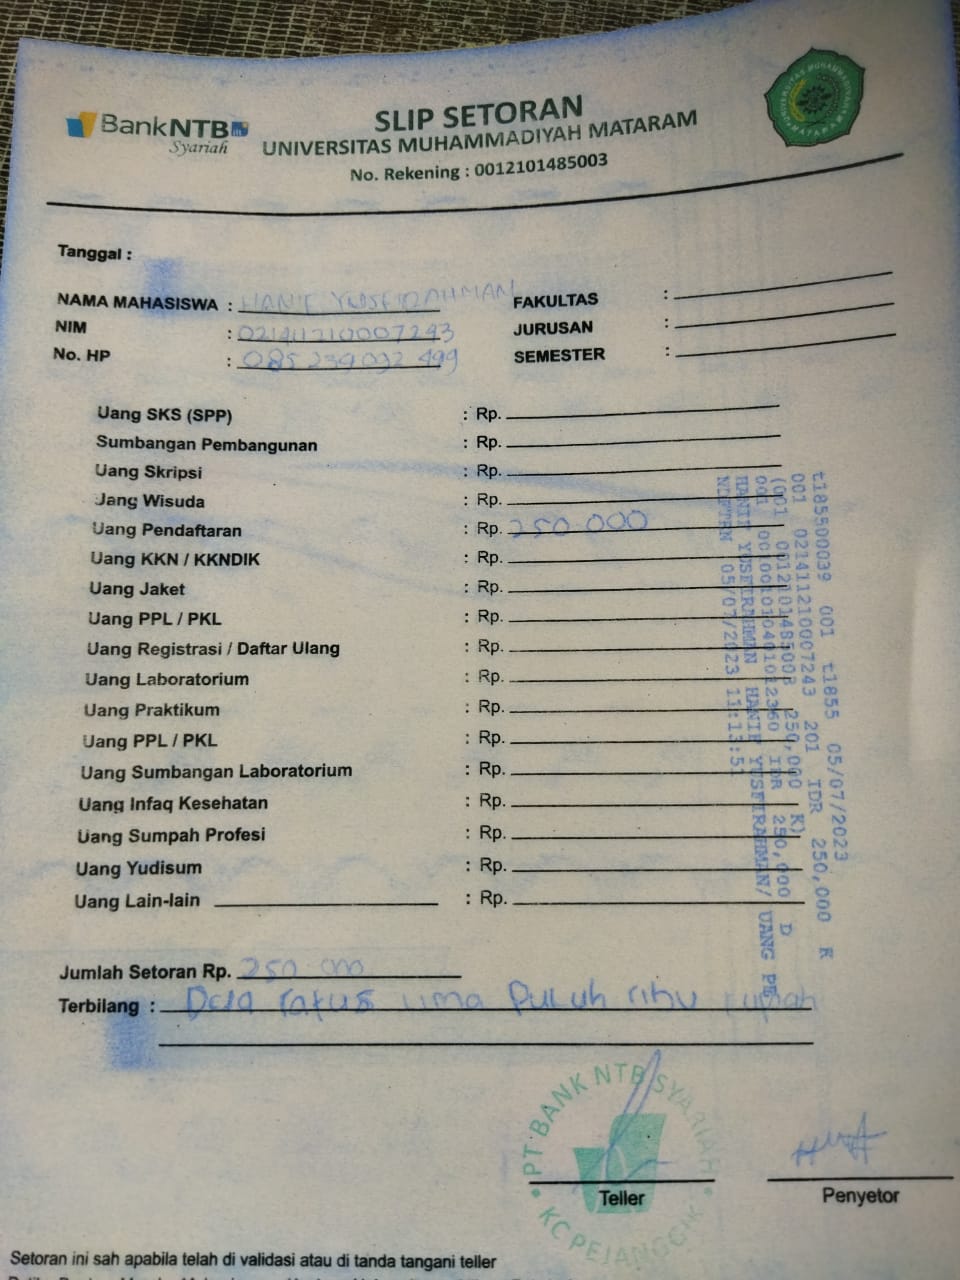 BankNTB
Syariah
SLIP SETORAN
UNIVERSITAS MUHAMMADIYAH MATARAM
No. Rekening : 0012101485003
UNIVERSITAS MUHAMMADIYAH
MATARAM
Tanggal :
NAMA MAHASISWA : HANIF YUSFIRAHMAN
NIM : 021411210007243
No. HP : 085239092499
FAKULTAS :
JURUSAN :
SEMESTER :
Uang SKS (SPP) : Rp.
Sumbangan Pembangunan : Rp.
Uang Skripsi : Rp.
Uang Wisuda : Rp.
Uang Pendaftaran : Rp. 250.000
Uang KKN / KKNDIK : Rp.
Uang Jaket : Rp.
Uang PPL / PKL : Rp.
Uang Registrasi / Daftar Ulang : Rp.
Uang Laboratorium : Rp.
Uang Praktikum : Rp.
Uang PPL / PKL : Rp.
Uang Sumbangan Laboratorium : Rp.
Uang Infaq Kesehatan : Rp.
Uang Sumpah Profesi : Rp.
Uang Yudisum : Rp.
Uang Lain-lain : Rp.
t185500039 001 t1855 05/07/2023
001 021411210007243 201 IDR 250,000 K
(001 0012101485003 250,000 K)
001 001001010401012360 IDR 250,000 D
HANIF YUSFIRAHMAN HANIF YUSFIRAHMAN/ UANG PE
NDFTRN 05/07/2023 11:13:51
Jumlah Setoran Rp. 250.000
Terbilang : Dua ratus lima puluh ribu rupiah
PT BANK NTB SYARIAH
KC PEJANGGIK
Teller
Penyetor
Setoran ini sah apabila telah di validasi atau di tanda tangani teller